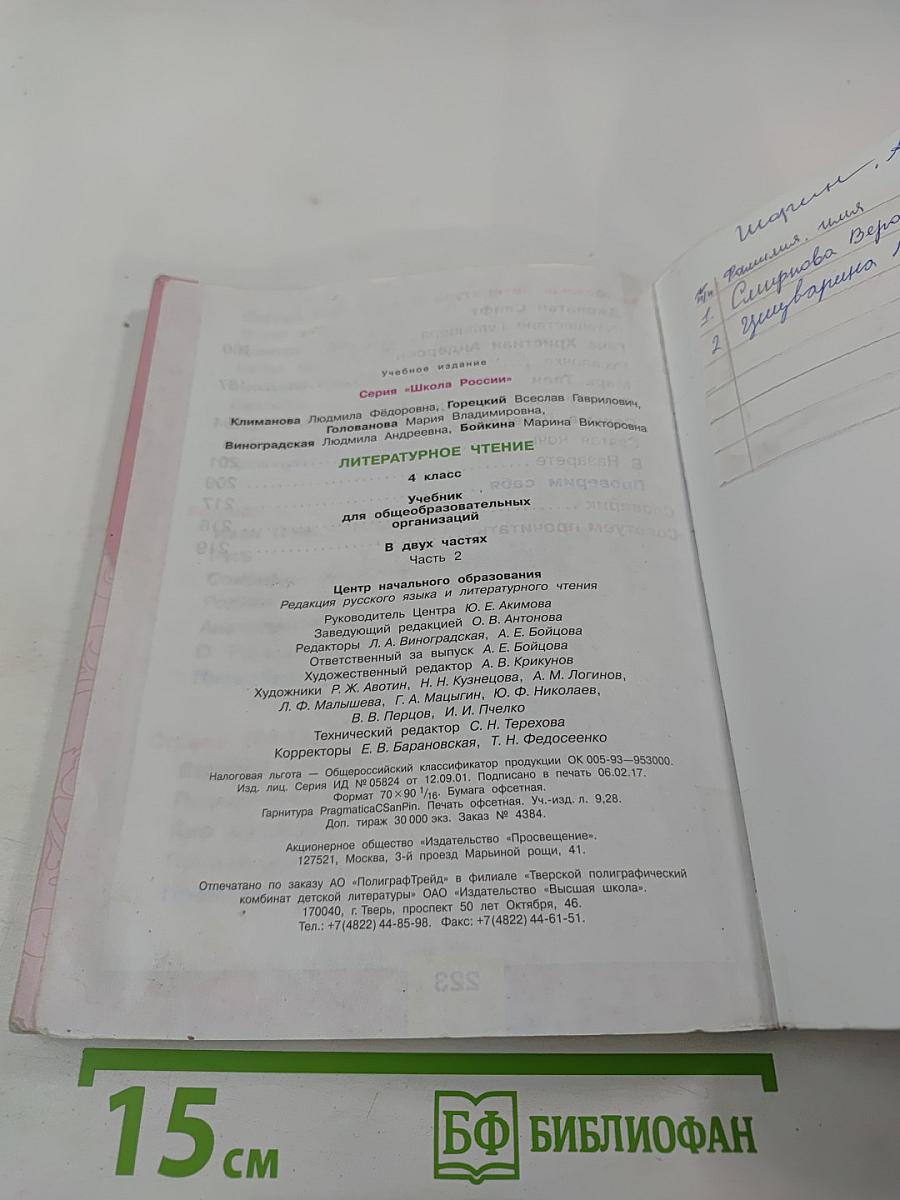 Учебное издание
Серия «Школа России»
Климанова Людмила Фёдоровна, Горецкий Всеслав Гаврилович,
Голованова Мария Владимировна,
Виноградская Людмила Андреевна, Бойкина Марина Викторовна
ЛИТЕРАТУРНОЕ ЧТЕНИЕ
4 класс
Учебник
для общеобразовательных
организаций
В двух частях
Часть 2
Центр начального образования
Редакция русского языка и литературного чтения
Руководитель Центра Ю. Е. Акимова
Заведующий редакцией О. В. Антонова
Редакторы Л. А. Виноградская, А. Е. Бойцова
Ответственный за выпуск А. Е. Бойцова
Художественный редактор А. В. Крикунов
Художники Р. Ж. Авотин, Н. Н. Кузнецова, А. М. Логинов,
Л. Ф. Малышева, Г. А. Мацыгин, Ю. Ф. Николаев,
В. В. Перцов, И. И. Пчелко
Технический редактор С. Н. Терехова
Корректоры Е. В. Барановская, Т. Н. Федосеенко
Налоговая льгота — Общероссийский классификатор продукции ОК 005-93—953000.
Изд. лиц. Серия ИД № 05824 от 12.09.01. Подписано в печать 06.02.17.
Формат 70×90 1/16. Бумага офсетная.
Гарнитура PragmaticaCSanPin. Печать офсетная. Уч.-изд. л. 9,28.
Доп. тираж 30 000 экз. Заказ № 4384.
Акционерное общество «Издательство «Просвещение».
127521, Москва, 3-й проезд Марьиной рощи, 41.
Отпечатано по заказу АО «ПолиграфТрейд» в филиале «Тверской полиграфический
комбинат детской литературы» ОАО «Издательство «Высшая школа».
170040, г. Тверь, проспект 50 лет Октября, 46.
Тел.: +7(4822) 44-85-98. Факс: +7(4822) 44-61-51.
№ п/п Фамилия, имя
1. Смирнова Веро
2
15 см
БФ БИБЛИОФАН